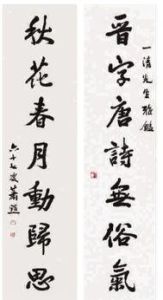 晋字唐詩無俗氣
一清先生雅鑑
秋花春月動歸思
六十七叟蕭